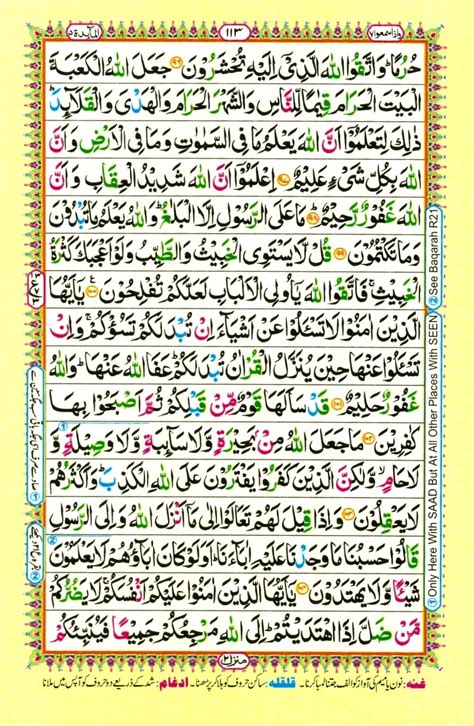 واذا سمعوا ٧
١١٣
المآئدة ٥
حُرُمًا ؕ وَاتَّقُوا اللّٰهَ الَّذِىْۤ اِلَيْهِ تُحْشَرُوْنَ ﴿۹۶﴾ جَعَلَ اللّٰهُ الْكَعْبَةَ
الْبَيْتَ الْحَرَامَ قِيٰمًا لِّلنَّاسِ وَالشَّهْرَ الْحَرَامَ وَالْهَدْىَ وَالْقَلَآئِدَ ؕ
ذٰلِكَ لِتَعْلَمُوْۤا اَنَّ اللّٰهَ يَعْلَمُ مَا فِى السَّمٰوٰتِ وَمَا فِى الْاَرْضِ وَاَنَّ
اللّٰهَ بِكُلِّ شَىْءٍ عَلِيْمٌ ﴿۹۷﴾ اِعْلَمُوْۤا اَنَّ اللّٰهَ شَدِيْدُ الْعِقَابِ وَاَنَّ
اللّٰهَ غَفُوْرٌ رَّحِيْمٌ ﴿۹۸﴾ مَا عَلَى الرَّسُوْلِ اِلَّا الْبَلٰغُ ؕ وَاللّٰهُ يَعْلَمُ مَا تُبْدُوْنَ
وَمَا تَكْتُمُوْنَ ﴿۹۹﴾ قُلْ لَّا يَسْتَوِى الْخَبِيْثُ وَالطَّيِّبُ وَلَوْ اَعْجَبَكَ كَثْرَةُ
الْخَبِيْثِ ۚ فَاتَّقُوا اللّٰهَ يٰۤاُولِى الْاَلْبَابِ لَعَلَّكُمْ تُفْلِحُوْنَ ﴿۱۰۰﴾ يٰۤاَيُّهَا
الَّذِيْنَ اٰمَنُوْا لَا تَسْئَلُوْا عَنْ اَشْيَآءَ اِنْ تُبْدَ لَكُمْ تَسُؤْكُمْ ۚ وَاِنْ
تَسْئَلُوْا عَنْهَا حِيْنَ يُنَزَّلُ الْقُرْاٰنُ تُبْدَ لَكُمْ ؕ عَفَا اللّٰهُ عَنْهَا ؕ وَاللّٰهُ
غَفُوْرٌ حَلِيْمٌ ﴿۱۰۱﴾ قَدْ سَاَلَهَا قَوْمٌ مِّنْ قَبْلِكُمْ ثُمَّ اَصْبَحُوْا بِهَا
كٰفِرِيْنَ ﴿۱۰۲﴾ مَا جَعَلَ اللّٰهُ مِنْۢ بَحِيْرَةٍ وَّلَا سَآئِبَةٍ وَّلَا وَصِيْلَةٍ وَّ
لَا حَامٍ ۙ وَّلٰكِنَّ الَّذِيْنَ كَفَرُوْا يَفْتَرُوْنَ عَلَى اللّٰهِ الْكَذِبَ ؕ وَاَكْثَرُهُمْ
لَا يَعْقِلُوْنَ ﴿۱۰۳﴾ وَاِذَا قِيْلَ لَهُمْ تَعَالَوْا اِلٰى مَاۤ اَنْزَلَ اللّٰهُ وَاِلَى الرَّسُوْلِ
قَالُوْا حَسْبُنَا مَا وَجَدْنَا عَلَيْهِ اٰبَآءَنَا ؕ اَوَلَوْ كَانَ اٰبَآؤُهُمْ لَا يَعْلَمُوْنَ
شَيْئًا وَّلَا يَهْتَدُوْنَ ﴿۱۰۴﴾ يٰۤاَيُّهَا الَّذِيْنَ اٰمَنُوْا عَلَيْكُمْ اَنْفُسَكُمْ ۚ لَا يَضُرُّكُمْ
مَّنْ ضَلَّ اِذَا اهْتَدَيْتُمْ ؕ اِلَى اللّٰهِ مَرْجِعُكُمْ جَمِيْعًا فَيُنَبِّئُكُمْ
منزل ٢
① Only Here With SAAD But At All Other Places With SEEN ② See Baqarah R21
غنه: نون یا میم کی آواز کو الف جتنا لمبا کرنا۔ قلقله: ساکن حروف کو ہلا کر پڑھنا۔ ادغام: شد کے ذریعے دو حروف کو آپس میں ملانا